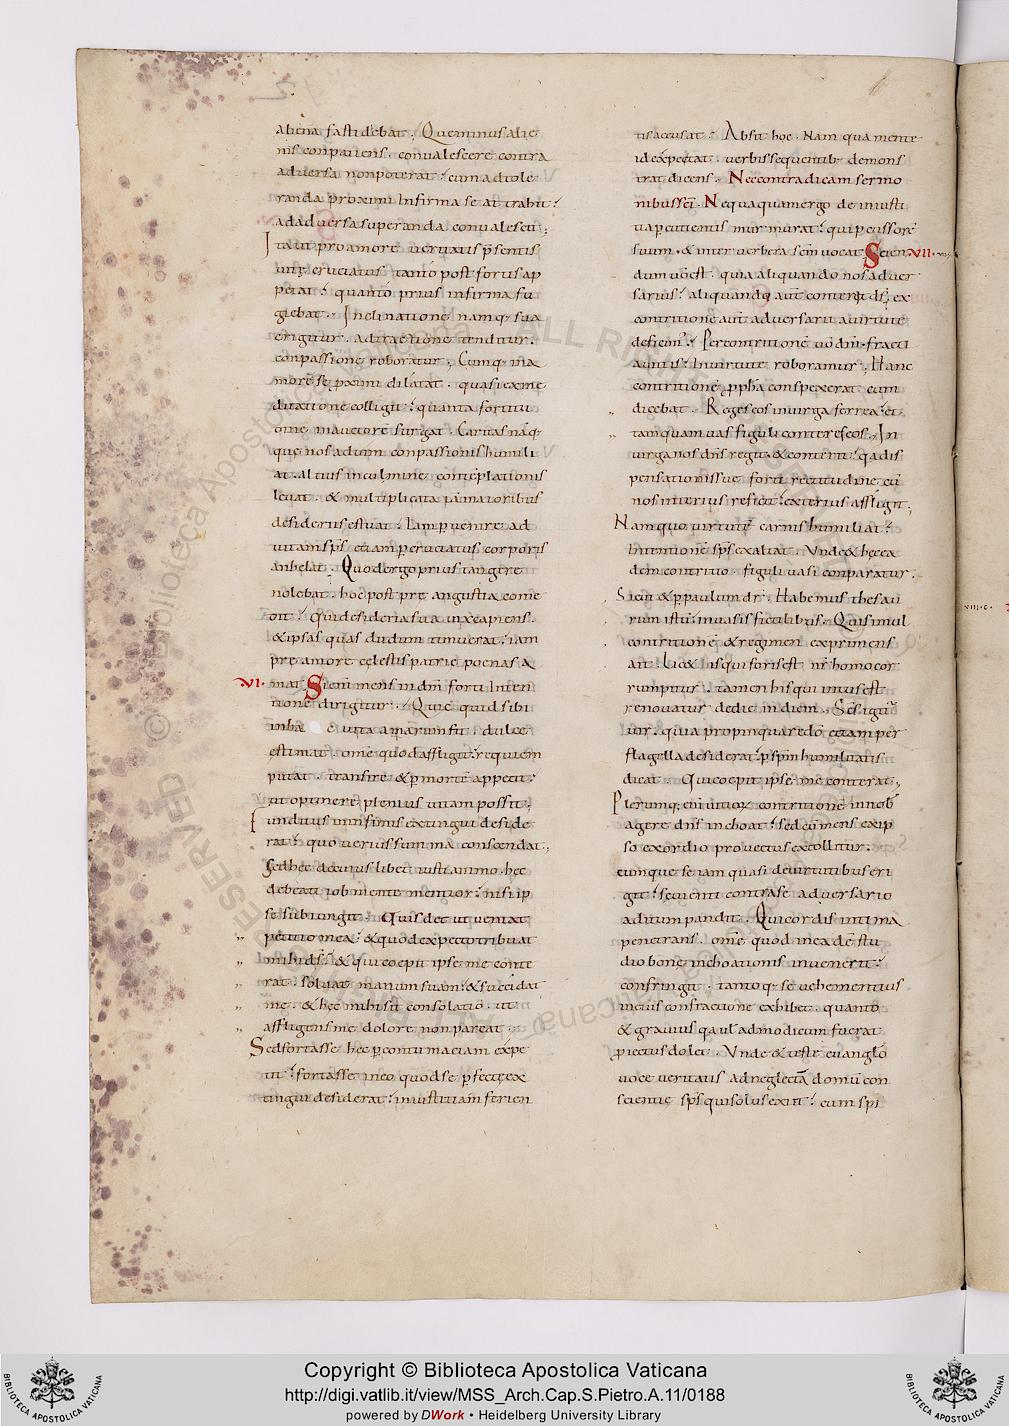 aliena fastidebat. Quem minus alie
nis conpatiens. convalescere contra
adversa non poterat. cum ad tole
randa proximi infirma se attrahit.
ad adversa superanda convalescit;
Ita ut pro amore veritatis psentis
vite cruciatus tanto post fortis ap
petat. quanto prius infirma fu
giebat. Inclinatione namq; sua
erigitur. adtractione tenditur.
conpassione roboratur; Cumq; in a
more se pximi dilatat. quasi ex me
ditatione colligit. quanta fortitu
dine. in auctore surgat. Caritas naq;
que nos ad um conpassionis humili
at. altius in culmine conteplationis
levat. & multiplicata iam maioribus
desideriis estuat. iam pvenire ad
vitam sps etiam p cruciatus corporis
anhelat. Quod ergo prius tangere
nolebat. hoc post pre angustia conte
git. Qui desideria sua vix capiens.
& ipsas quas dudum timuerat. iam
pre amore celestis patrie poenas a
VI. mat. Si enim mens in dm forti inten
tione dirigitur. Quicquid sibi
in ha e vita amarum fit. dulce
estimat. ome quod affligit. requiem
putat. transire & p morte appetit.
ut optinere plenius vitam possit.
Funditus in infimis extingui deside
rat. quo verius summa conscendat;
Sed hec decuius libet iusti animo. hec
debeati iob mente mentior. nisi ip
se subiungit. Quis det ut veniat
petitio mea. & quod expecto tribuat
mihi ds. & qui coepit ipse me conte
rat. solvat manum suam. & succidat
me. & hec mihi sit consolatio. ut
affligens me dolore non parcat.
Sed fortasse hec p contumaciam expe
tit. fortasse in eo quod se pfecte ex
tingui desiderat. iniustitiam ferien
tis accusat. Absit hoc. Nam qua mente
id expectat. verbis sequentib; demons
trat dicens. Nec contradicam sermo
nibus sci. Nequaquam ergo de iniusti
tia pcutientis murmurat. qui pcussore
suum. & inter verbera scm vocat. Scien VII.
dum vo est. quia aliquando nos adver
sarius. aliquando aut conterit ds; ex
contritione aut adversarii a virtute
deficim'. Per contritione vo dni. fracti
a vitiis. in virtute roboramur; Hanc
contritione ppha conspexerat cum
dicebat. Reges eos in virga ferrea. et
tamquam vas figuli confereges eos. In
virga nos dns regit. & conterit. qa dis
pensationis sue forti rectitudine cu
nos interius reficit. exterius affligit;
Nam quo virtute carnis humiliat.
intentione sps exaltat. Unde & hec ea
dem contritio. figuli vasi conparatur.
Sicut & p paulum dr. Habemus thesau
rum istu. in vasis fictilibus. Qui simul
contritione & regimen exprimens
ait. Lic& is qui foris est nr homo cor
rumpitur. tamen his qui intus est
renovatur de die in diem. Scs igitur
vir. quia propinquare do etiam per
flagella desiderat. p spm humilitatis
dicat. Qui coepit ipse me conterat;
Plerumq; eni vitioz contritione in nob
agere dns inchoat. sed cu mens ex ip
so exordio provectus extollitur.
cumque se iam quasi de virtutibus eri
git. sevienti contra se adversario
aditum pandit. Qui cordis intima
penetrans. ome quod in ea de stu
dio bone inchoationis invenerit.
confringit. tantoq; se vehementius
in eius confractione exhibet. quanto
& gravius qa vel ad modicum fuerat
pfectus dolet. Unde & teste evanglo
voce veritatis ad neglecta domu con
scientie sps qui solus exiit. cum spi
viii. c.
Copyright © Biblioteca Apostolica Vaticana
http://digi.vatlib.it/view/MSS_Arch.Cap.S.Pietro.A.11/0188
powered by DWork • Heidelberg University Library
BIBLIOTECA APOSTOLICA VATICANA
BIBLIOTECA APOSTOLICA VATICANA